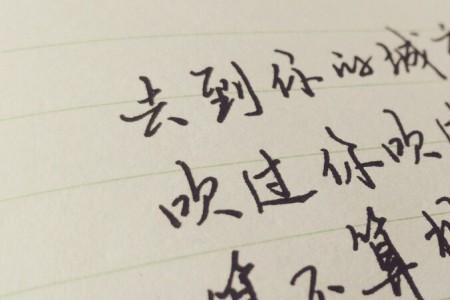 去到你的城
吹过你吹
算不算